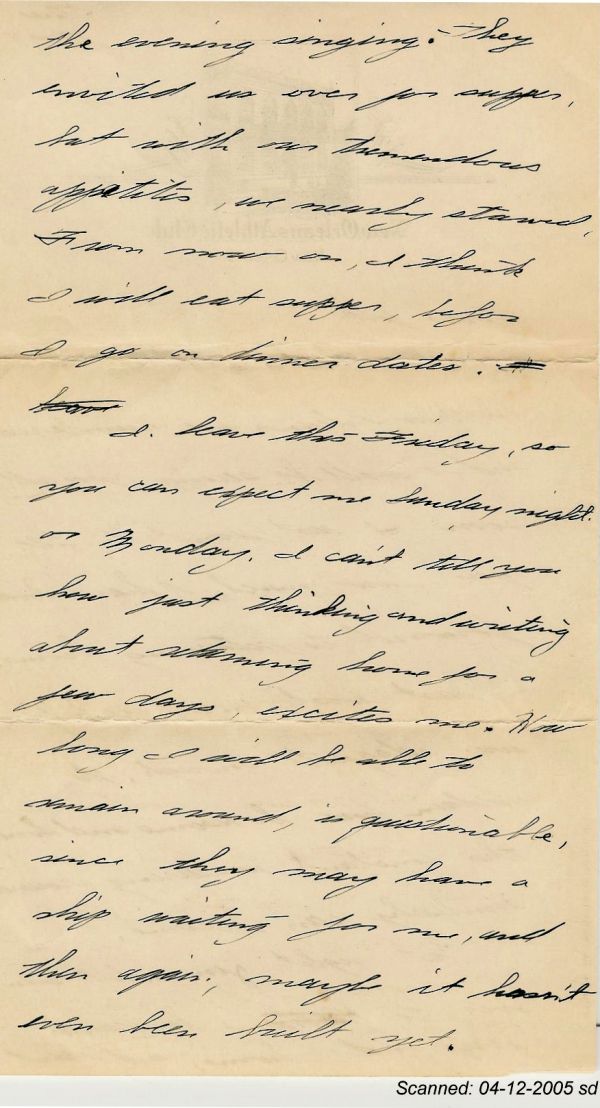 the evening singing. They
invited us over for supper,
but with our tremendous
appetites, we nearly starved.
From now on, I think
I will eat supper, before
I go on dinner dates. I
leave
I leave this Friday, so
you can expect me Sunday night
or Monday. I can't tell you
how just thinking and writing
about returning home for a
few days, excites me. How
long I will be able to
remain around, is questionable,
since they may have a
ship waiting for me, and
then again, maybe it hasn't
even been built yet.
New Orleans Athletic Club
Scanned: 04-12-2005 sd